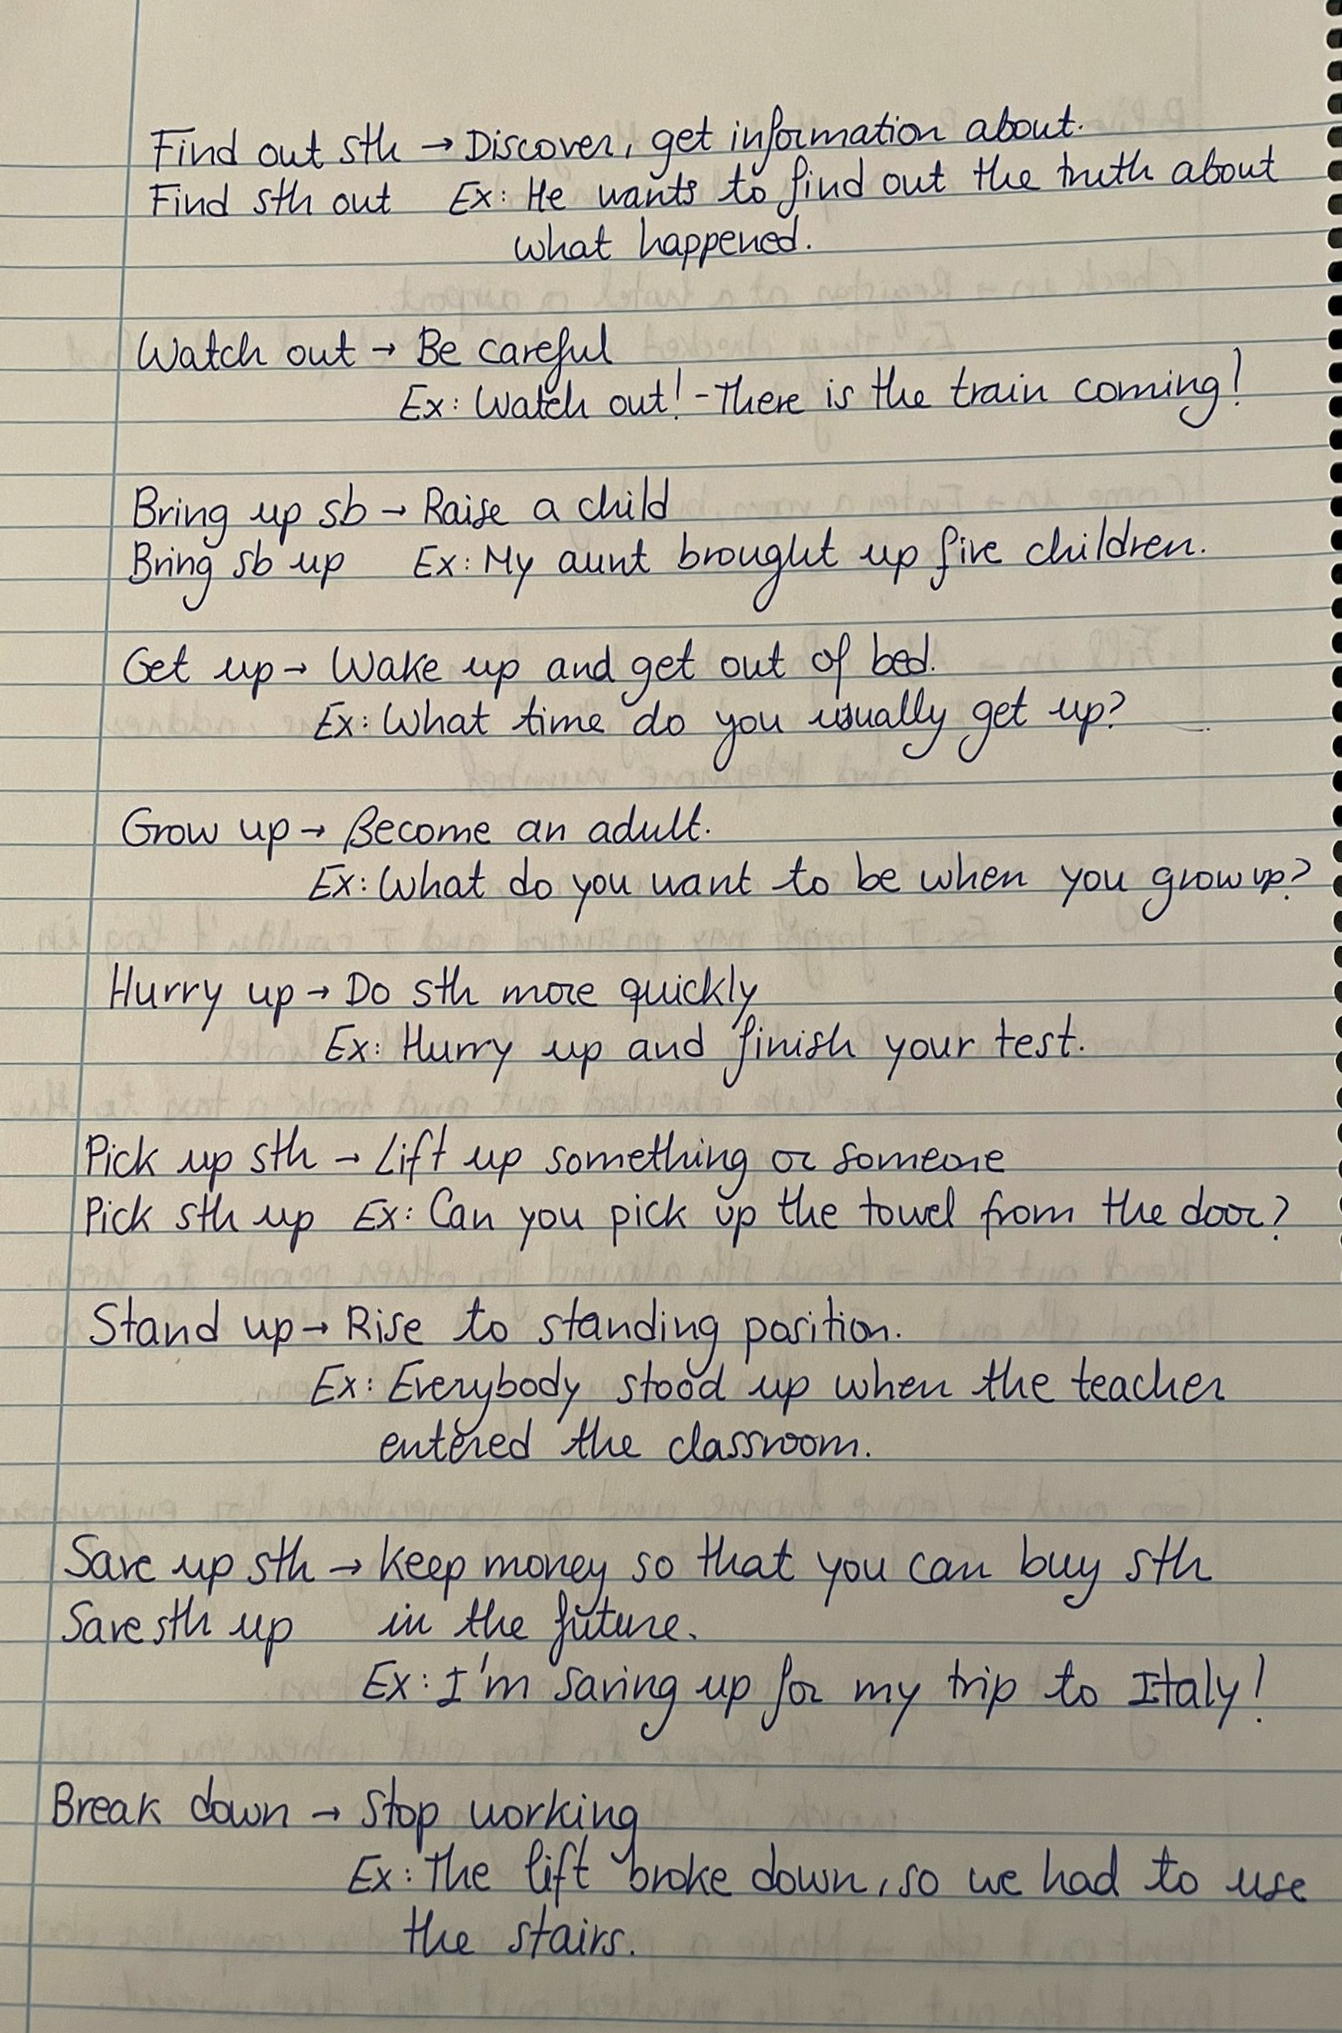 Find out sth → Discover, get information about.
Find sth out Ex: He wants to find out the truth about
what happened.
Watch out → Be careful
Ex: Watch out! - There is the train coming!
Bring up sb → Raise a child
Bring sb up Ex: My aunt brought up five children.
Get up → Wake up and get out of bed.
Ex: What time do you usually get up?
Grow up → Become an adult.
Ex: What do you want to be when you grow up?
Hurry up → Do sth more quickly
Ex: Hurry up and finish your test.
Pick up sth → Lift up something or someone
Pick sth up Ex: Can you pick up the towel from the door?
Stand up → Rise to standing position.
Ex: Everybody stood up when the teacher
entered the classroom.
Save up sth → Keep money so that you can buy sth
Save sth up in the future.
Ex: I'm saving up for my trip to Italy!
Break down → Stop working
Ex: The lift broke down, so we had to use
the stairs.